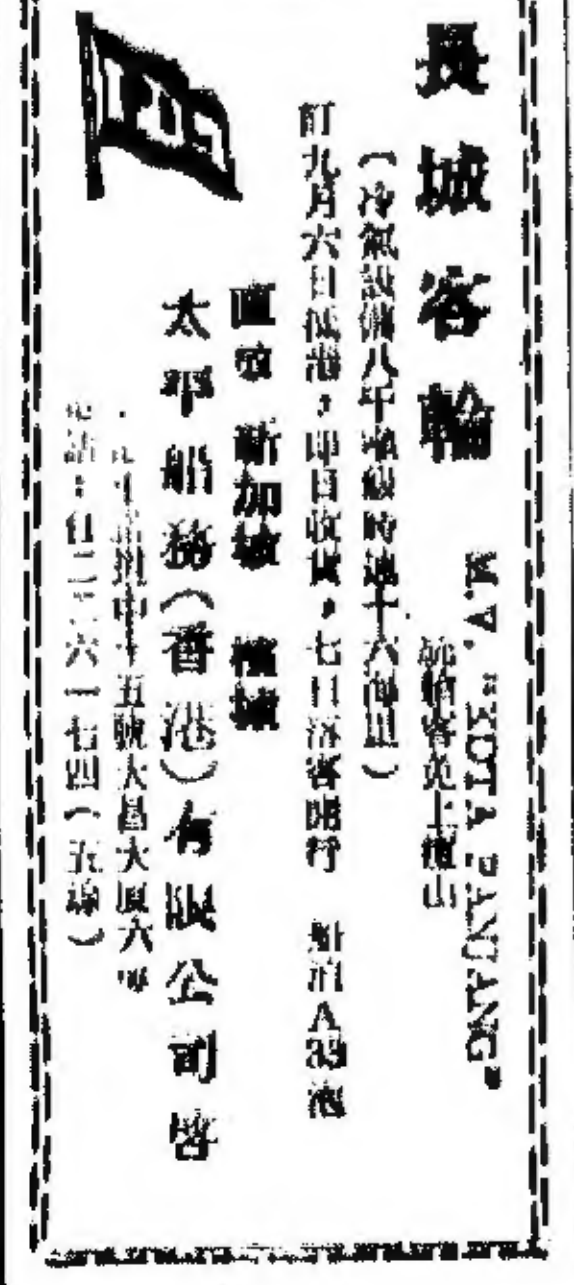 長城客輪
M.V. "KOTA PANJANG"
(冷氣設備八千車級時速十六海里)
訂九月六日抵港,即日收貨,七日落客開行 船泊A39泡
直放 新加坡 檳城
太平船務(香港)有限公司啓
十五號大昌大廈六
電話:
六一七四(五線)